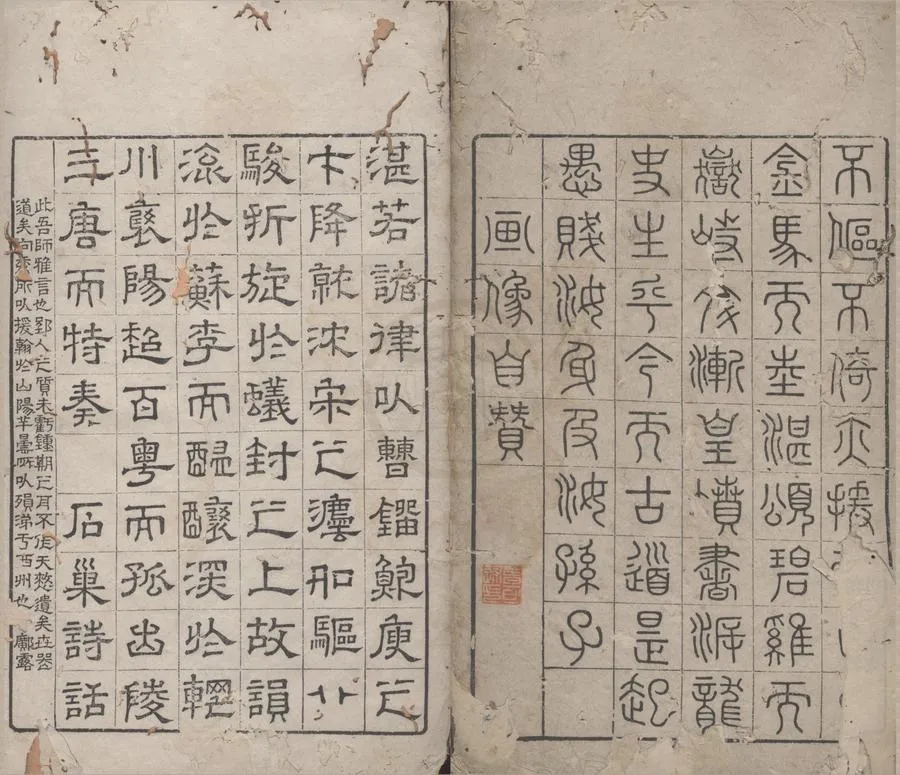 不傴不倚亦援
金馬而坐湛頌碧雞而
嶽峙漸皇墳書涯龍
史生乎今而古道是起
愚賤汝身及汝孫子
画像自贊
湛若諧律以曹鎦鮑庾之
才降就沈宋之灋如驅八
駿折旋於蟻封之上故韻
流於蘇李而醞釀深於輞
川襄陽超百粵而孤出陵
三唐而特奏 石巢詩話
此吾師雅言也郢人之質未虧鍾期之耳不作天憗遺矣
道矣向秀所以援翰於山陽羊曇所以殞涕于西州也 鄺露